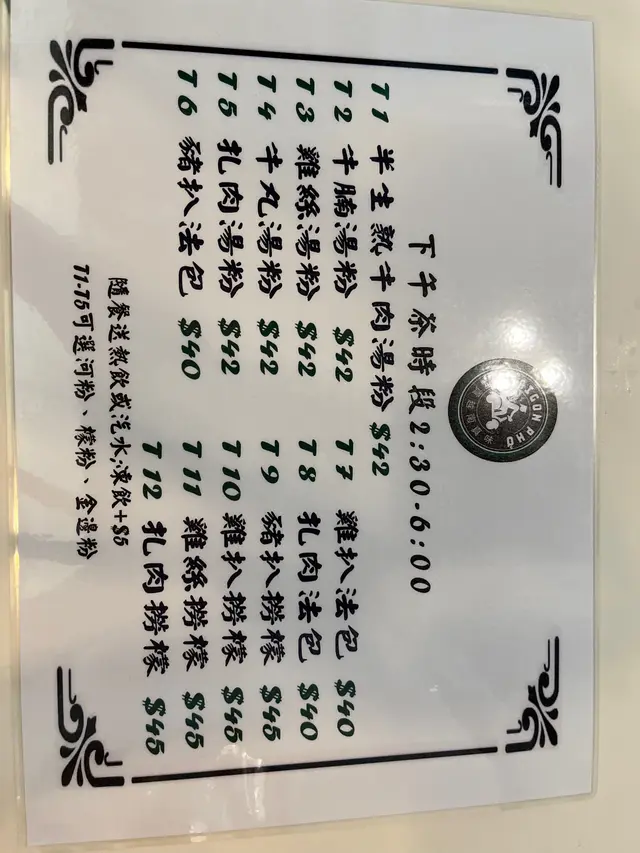 SAIGON PHO
下午茶時段2:30-6:00
T1 半生熟牛肉湯粉 $42
T2 牛腩湯粉 $42
T3 雞絲湯粉 $42
T4 牛丸湯粉 $42
T5 扎肉湯粉 $42
T6 豬扒法包 $40
T7 雞扒法包 $40
T8 扎肉法包 $40
T9 豬扒撈檬 $45
T10 雞扒撈檬 $45
T11 雞絲撈檬 $45
T12 扎肉撈檬 $45
隨餐送熱飲或汽水,凍飲+$5
T1-T5可選河粉、檬粉、金邊粉